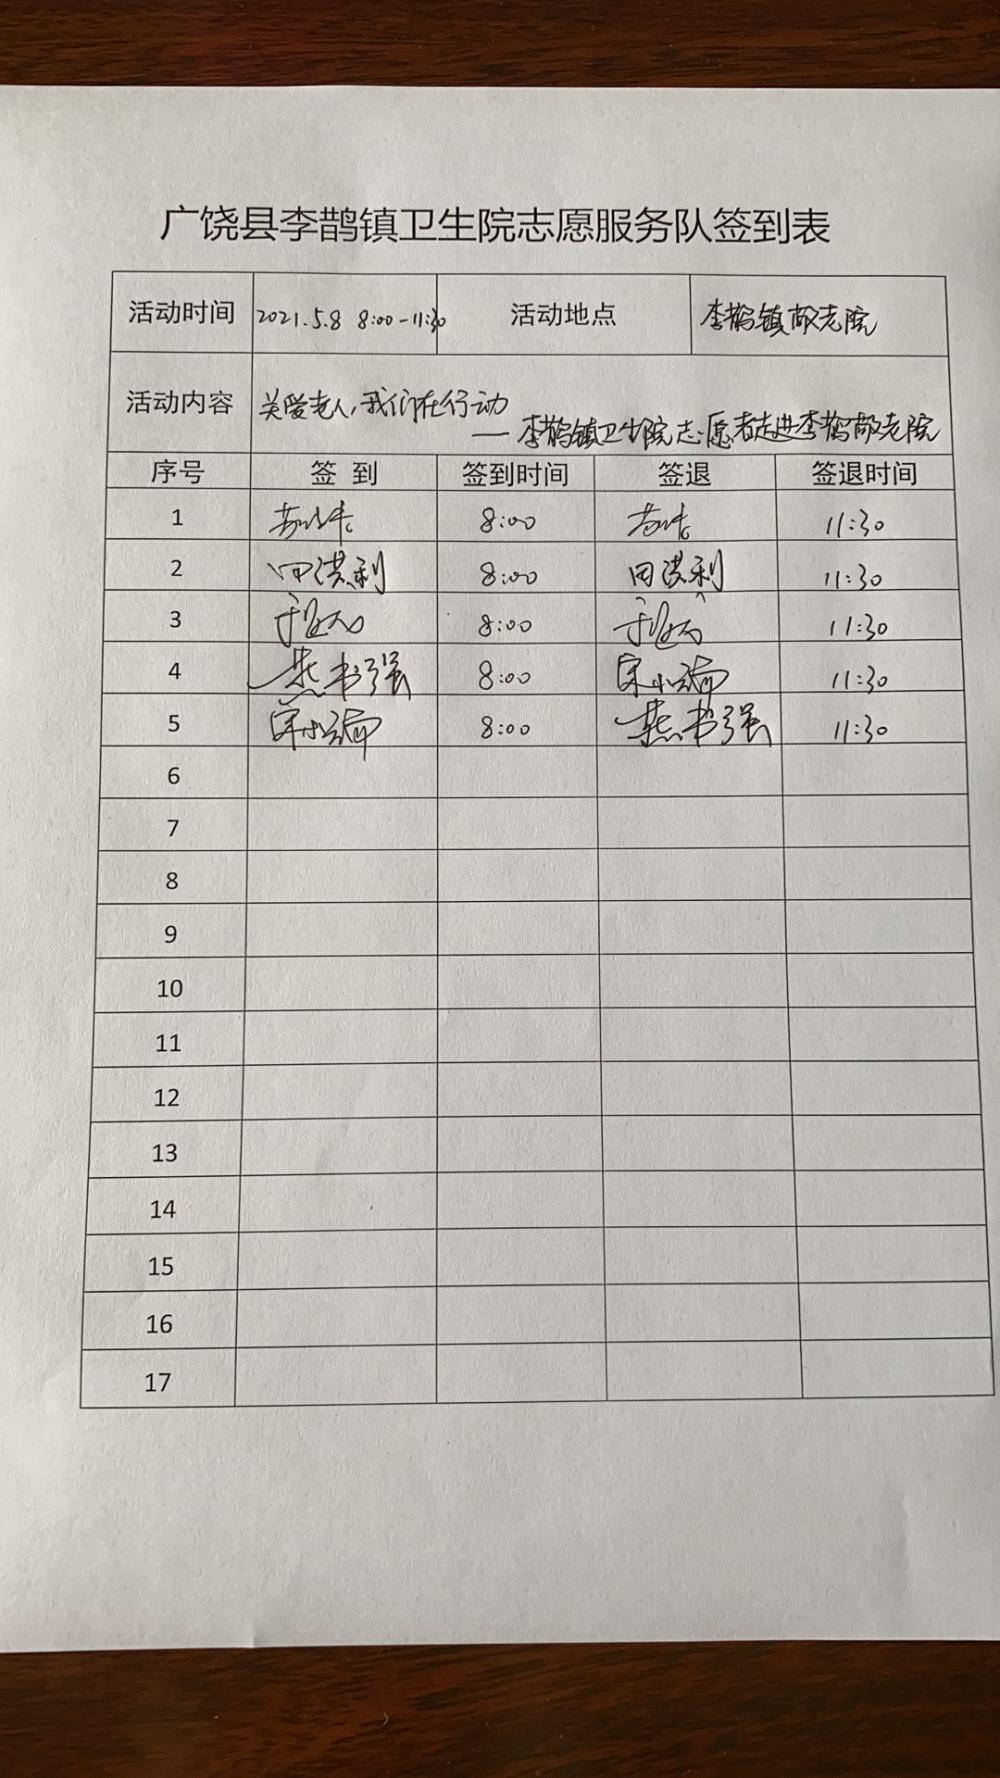 广饶县李鹊镇卫生院志愿服务队签到表
活动时间 2021.5.8 8:00-11:30 活动地点 李鹊镇敬老院
活动内容 关爱老人,我们在行动
— 李鹊镇卫生院志愿者走进李鹊敬老院
序号 签到 签到时间 签退 签退时间
1 8:00 11:30
2 田洪利 8:00 田洪利 11:30
3 8:00 11:30
4 燕书强 8:00 11:30
5 8:00 燕书强 11:30
6
7
8
9
10
11
12
13
14
15
16
17